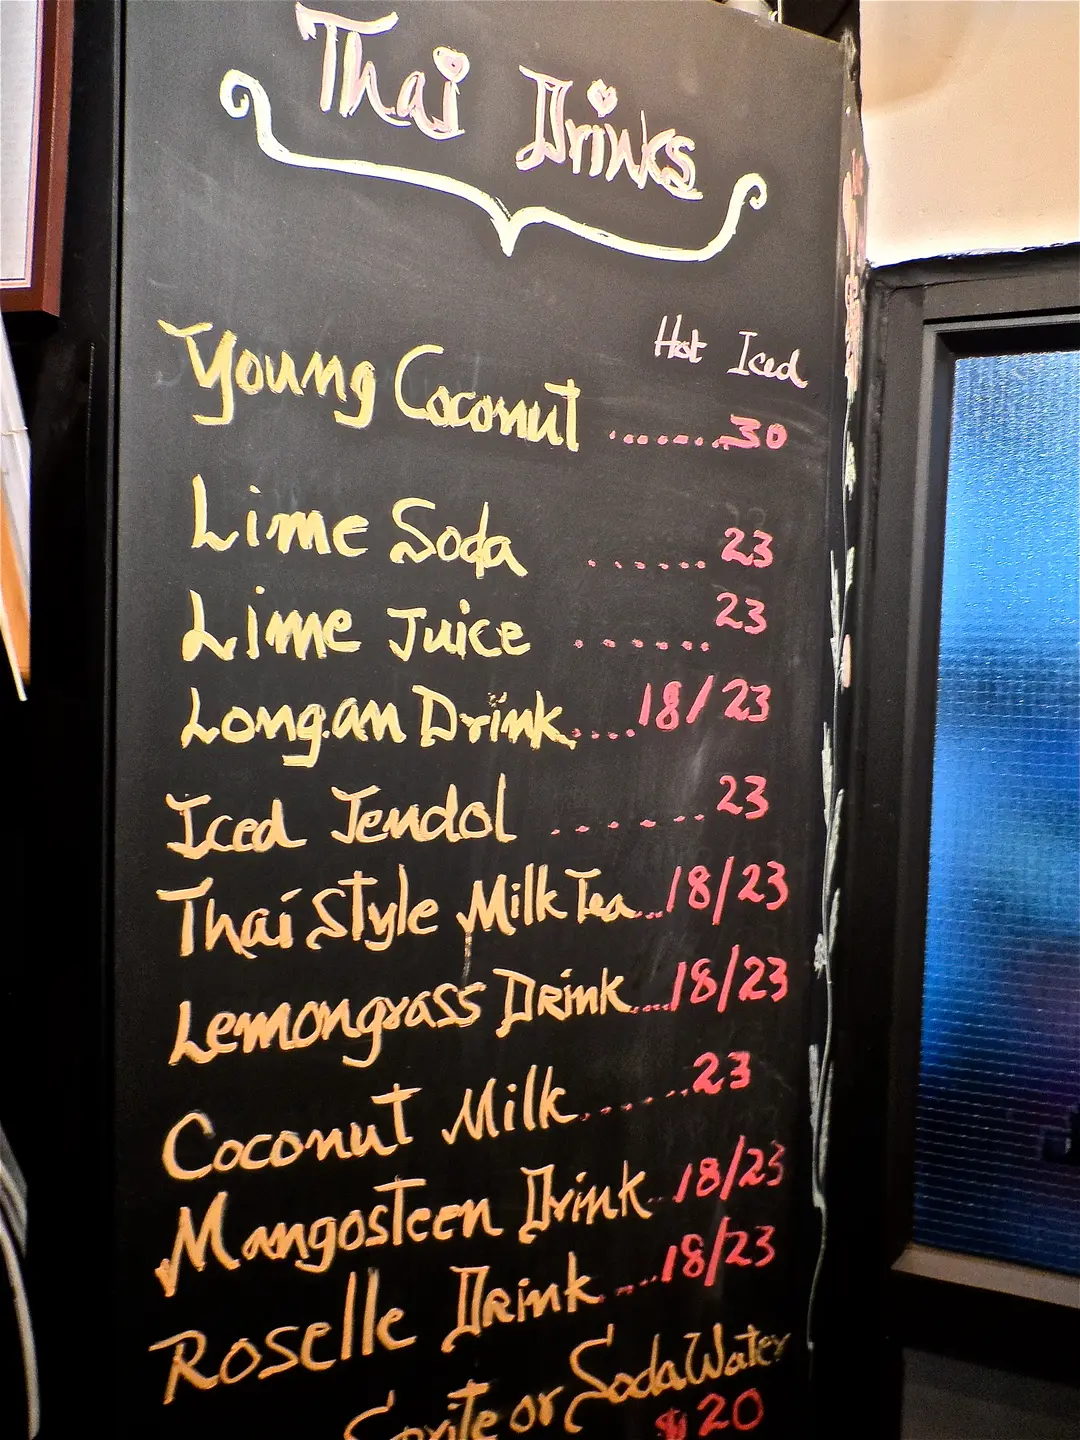 Thai Drinks
Hot Iced
Young Coconut ........30
Lime Soda ...... 23
Lime Juice ...... 23
Longan Drink....18/23
Iced Jendol .......23
Thai Style Milk Tea...18/23
Lemongrass Drink....18/23
Coconut Milk.......23
Mangosteen Drink..18/23
Roselle Drink....18/23
Sprite or Soda Water
$20